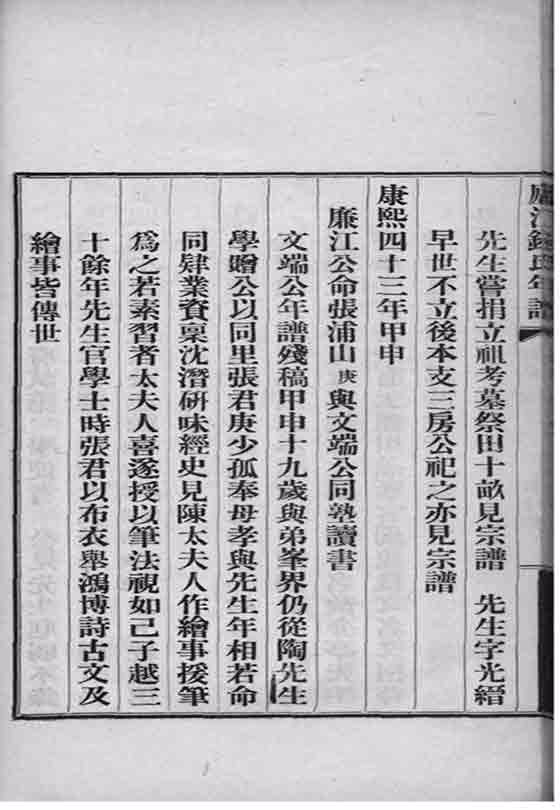 廬江錢氏年譜
先生嘗捐立祖考墓祭田十畝見宗譜　先生字光縉
早世不立後本支三房公祀之亦見宗譜
康熙四十三年甲申
廉江公命張浦山庚與文端公同塾讀書
文端公年譜殘稿甲申十九歲與弟峯界仍從陶先生
學贈公以同里張君庚少孤奉母孝與先生年相若命
同肄業資稟沈潛研味經史見陳太夫人作繪事援筆
爲之若素習者太夫人喜遂授以筆法視如己子越三
十餘年先生官學士時張君以布衣舉鴻博詩古文及
繪事皆傳世